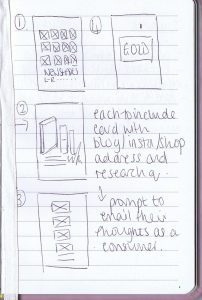 1
i
EOLD
NEWSPAPER
2
each to include
card with
blog/insta/shop
address and
research q.
3
prompt to
email their
thoughts as a
consumer.